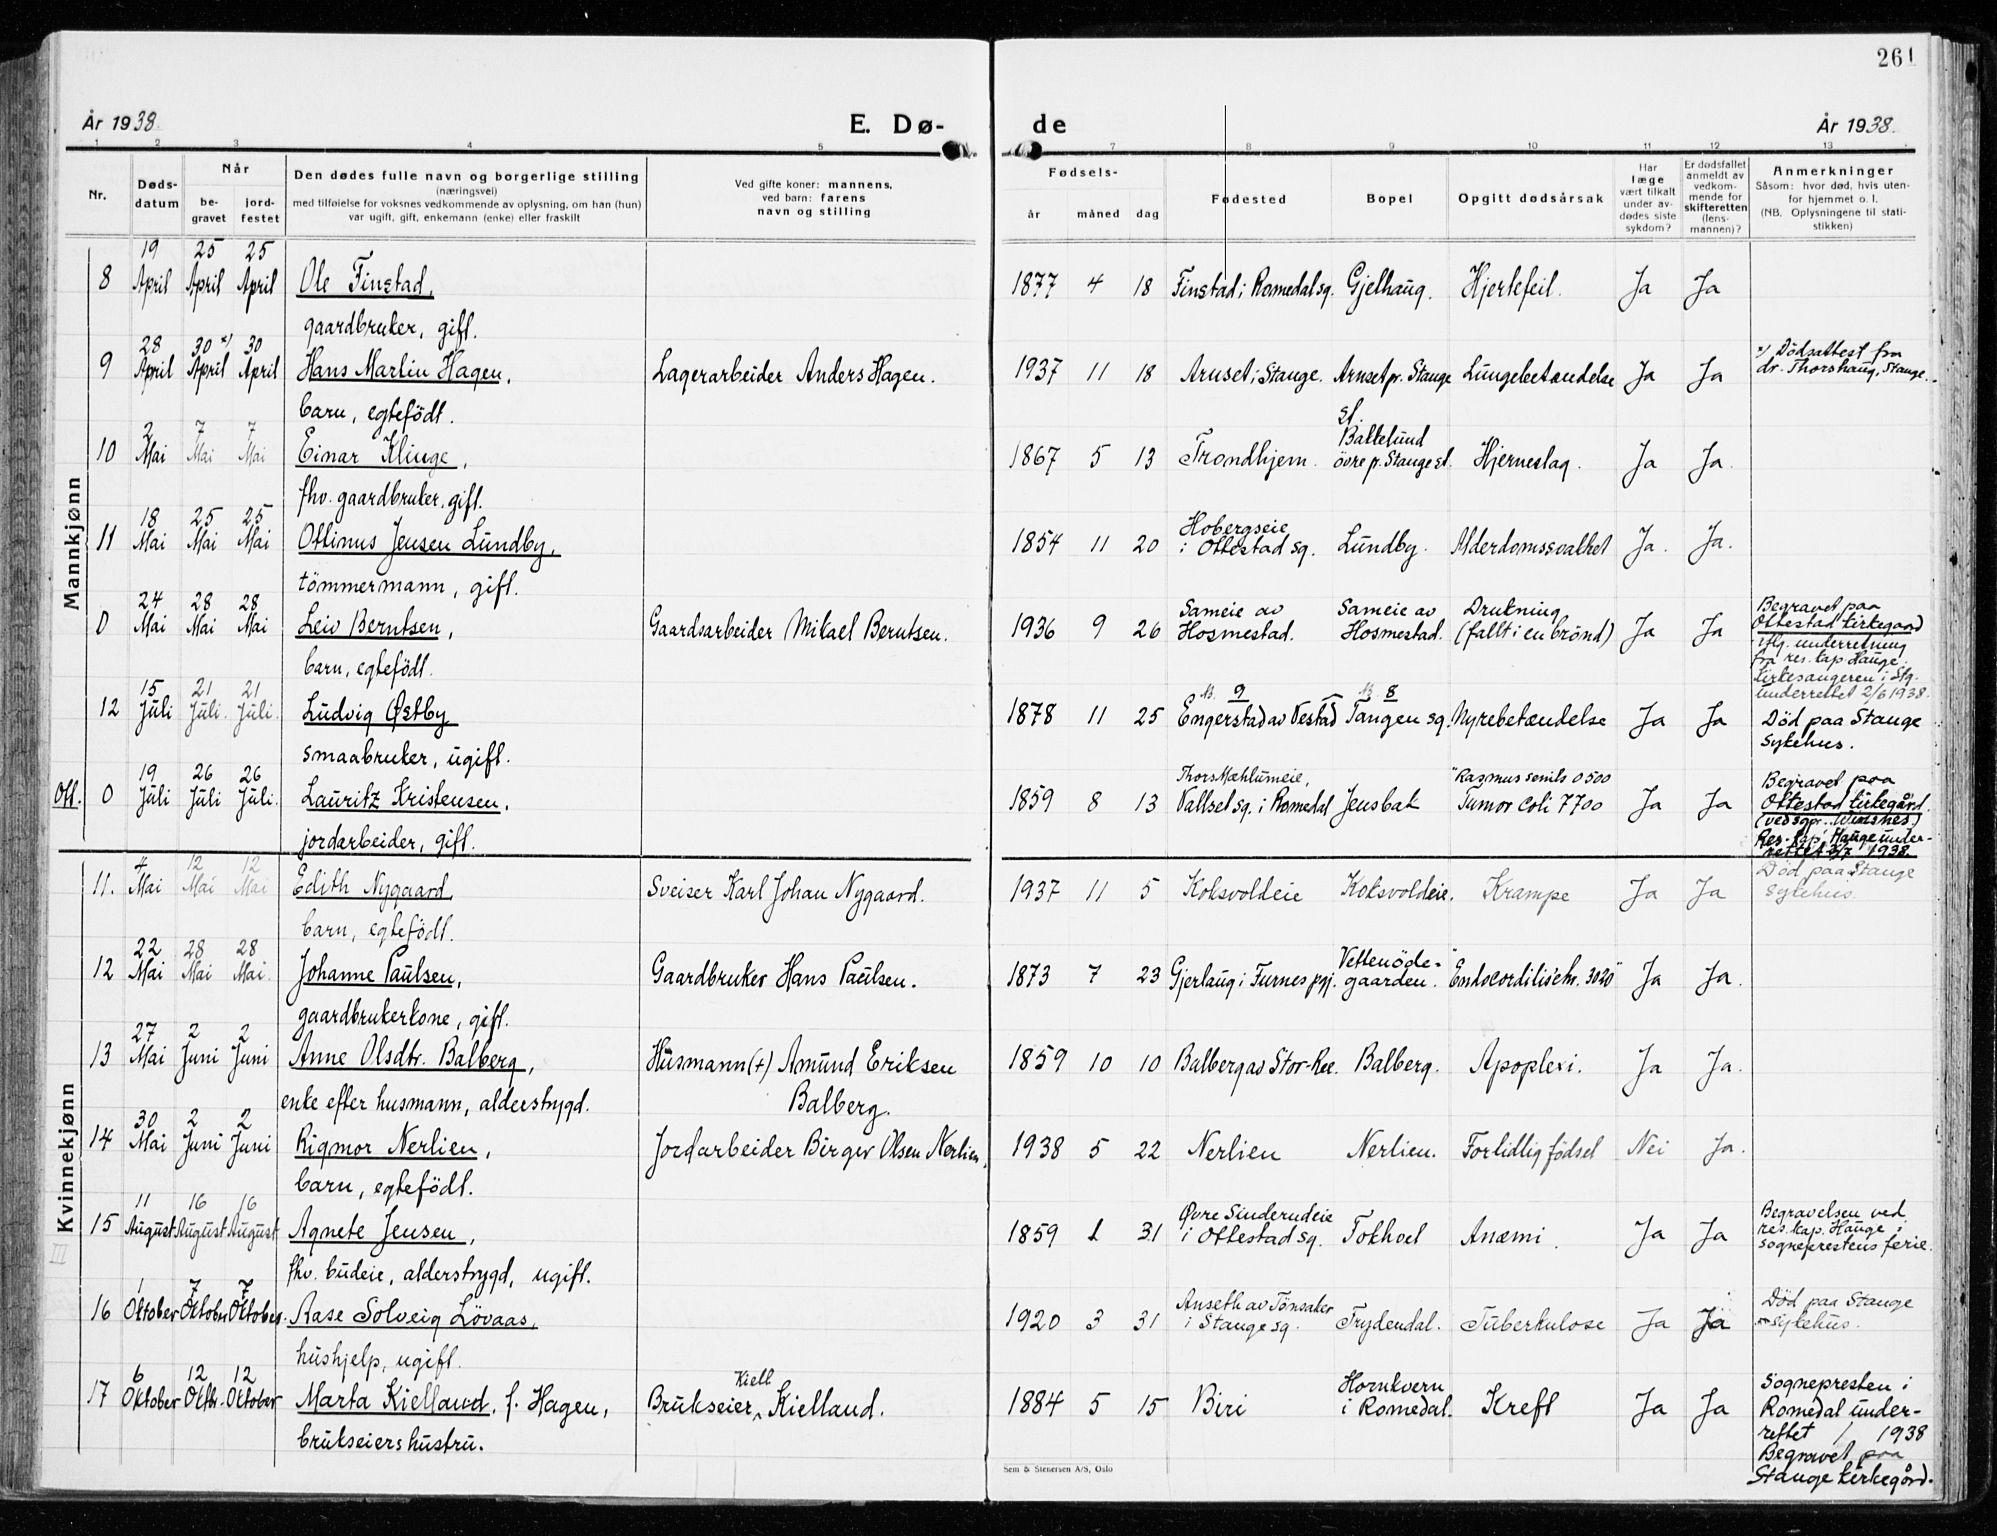 261
År 1938.
E. Dø-
de
År 1938.
1 2 3 4 5 7 8 9 10 11 12 13
Nr.
Døds-
datum
Når
be-
gravet
jord-
festet
Den dødes fulle navn og borgerlige stilling
(næringsvei)
med tilføielse for voksnes vedkommende av oplysning, om han (hun)
var ugift, gift, enkemann (enke) eller fraskilt
Ved gifte koner: mannens,
ved barn: farens
navn og stilling
Fødsels-
år måned dag
Fødested
Bopel
Opgitt dødsårsak
Har
læge
vært tilkalt
under av-
dødes siste
sykdom?
Er dødsfallet
anmeldt av
vedkom-
mende for
skifteretten
(lens-
mannen)?
Anmerkninger
Såsom: hvor død, hvis uten-
for hjemmet o. l.
(NB. Oplysningene til stati-
stikken)
Mannkjønn
19 25 25
8 April April April Ole Finstad, 1877 4 18 Finstad i Romedal sg. Gjelhaug. Hjertefeil. Ja Ja
gaardbruker, gift.
28 30 x) 30
9 April April April Hans Martin Hagen, Lagerarbeider Anders Hagen. 1937 11 18 Arnset i Stange. Arnset pr. Stange Lungebetændelse Ja Ja
x) Dödsattest fra
dr. Thorshaug, Stange.
barn, egtefödt.
st.
2 7 7
Bakkelund
10 Mai Mai Mai Einar Klinge, 1867 5 13 Trondhjem. övre p. Stange st. Hjerneslag. Ja Ja.
fhv. gaardbruker, gift.
18 25 25
Hobergseie
11 Mai Mai Mai Ottinus Jensen Lundby, 1854 11 20 i Ottestad sg. Lundby. Alderdomssvakhet Ja. Ja.
tömmermann, gift.
24 28 28
Sameie av Sameie av Drukning
0 Mai Mai Mai Leiv Berntsen, Gaardsarbeider Mikael Berntsen. 1936 9 26 Hosmestad. Hosmestad. (fallt i en brönd) Ja Ja
Begravet paa
Ottestad kirkegaard
iflg. underretning
fra res. kap. Hauge.
Kirkesangeren i Stg.
underrettet 2/6 1938.
barn, egtefödt.
15 21 21
9 8
12 Juli Juli. Juli. Ludvig Østby 1878 11 25 Engerstad av Vestad Tangen sg. Nyrebetændelse Ja Ja
Död paa Stange
sykehus.
smaabruker, ugift.
19 26 26
Thors Mæhlumeie, "Rasmus senils 0500
Ott. 0 Juli Juli Juli. Lauritz Kristensen, 1859 8 13 Vallset sg. i Romedal Jensbak Tumor coli 7700 Ja Ja
Begravet paa
Ottestad kirkegård.
(ved sgpr. Wiesnes.)
Res. kap. Hauge under-
rettet 27/7 1938.
jordarbeider, gift.
Kvinnekjønn
III
4 12 12
11. Mai Mai Mai Edith Nygaard, Sveiser Karl Johan Nygaard. 1937 11 5 Koksvoldeie Koksvoldeie. Krampe Ja Ja
Död paa Stange
sykehus.
barn, egtefödt.
22 28 28
Vettenöde-
12 Mai Mai Mai. Johanne Paulsen, Gaardbruker Hans Paulsen. 1873 7 23 Gjerlaug i Furnes pgj. gaarden. "Endocorditis chr. 3020" Ja Ja.
gaardbrukerkone, gift.
27 2 2
13 Mai Juni Juni Anne Olsdtr. Balberg, Husmann (+) Amund Eriksen 1859 10 10 Balberg av Stor-Ree. Balberg. Apoplexi. Ja Ja.
enke efter husmann, alderstrygd. Balberg.
30 2 2
14 Mai Juni Juni Rigmor Nerlien, Jordarbeider Birger Olsen Nerlien. 1938 5 22 Nerlien Nerlien. For tidlig födsel Nei Ja.
barn, egtefödt.
11 16 16
Øvre Sinderudeie
15 August August August Agnete Jensen, 1859 1 31 i Ottestad sg. Tokhoel Anæmi. Ja Ja
Begravelsen ved
res. kap. Hauge i
sogneprestens ferie.
fhv. budeie, alderstrygd, ugift.
1 7 7
Anseth av Tönsaker
16 Oktober Oktober Oktober. Aase Solveig Lövaas, 1920 3 31 i Stange sg. Frydendal. Tuberkulose Ja Ja
Död paa Stange
sykehus.
hushjelp, ugift.
6 12 12
Kiell Hornkvern
17 Oktober Oktbr. Oktober Marta Kielland, f. Hagen, Brukseier Kielland. 1884 5 15 Biri i Romedal. Kreft Ja Ja
Sognepresten i
Romedal under-
rettet / 1938
Begravet paa
Stange kirkegård.
brukseiers hustru.
Sem & Stenersen A/S, Oslo